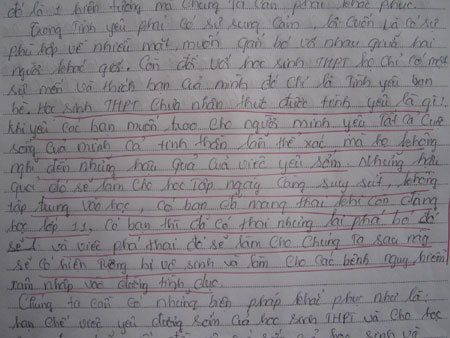 đó là 1 hiện tượng mà chúng ta cần phải khắc phục.
Trong tình yêu phải có sự rung cảm, lôi cuốn và có sự
phù hợp về nhiều mặt, muốn gắn bó với nhau giữa hai
người khác giới. Còn đối với học sinh THPT họ chỉ có một
sự mến và thích bạn của mình đó chỉ là tình yêu bạn
bè. Học sinh THPT chưa nhận thức được tình yêu là gì.
khi yêu các bạn muốn trao cho người mình yêu tất cả cuộc
sống của mình cả tinh thần lẫn thể xác, mà họ không
nghĩ đến những hậu quả của việc yêu sớm. Những hậu
quả đó sẽ làm cho học tập ngày càng suy sút, không
tập trung vào học, có bạn đã mang thai khi còn đang
học lớp 11, có bạn thì đã có thai nhưng lại phá bỏ đó
và việc phá thai đó sẽ làm cho chúng ta sau này
sẽ có hiện tượng bị vô sinh và làm cho các bệnh nguy hiểm
xâm nhập vào đường tình dục.
Chúng ta cần có những biện pháp khắc phục như là:
hạn chế việc yêu đương sớm của học sinh THPT và cho học
sinh và